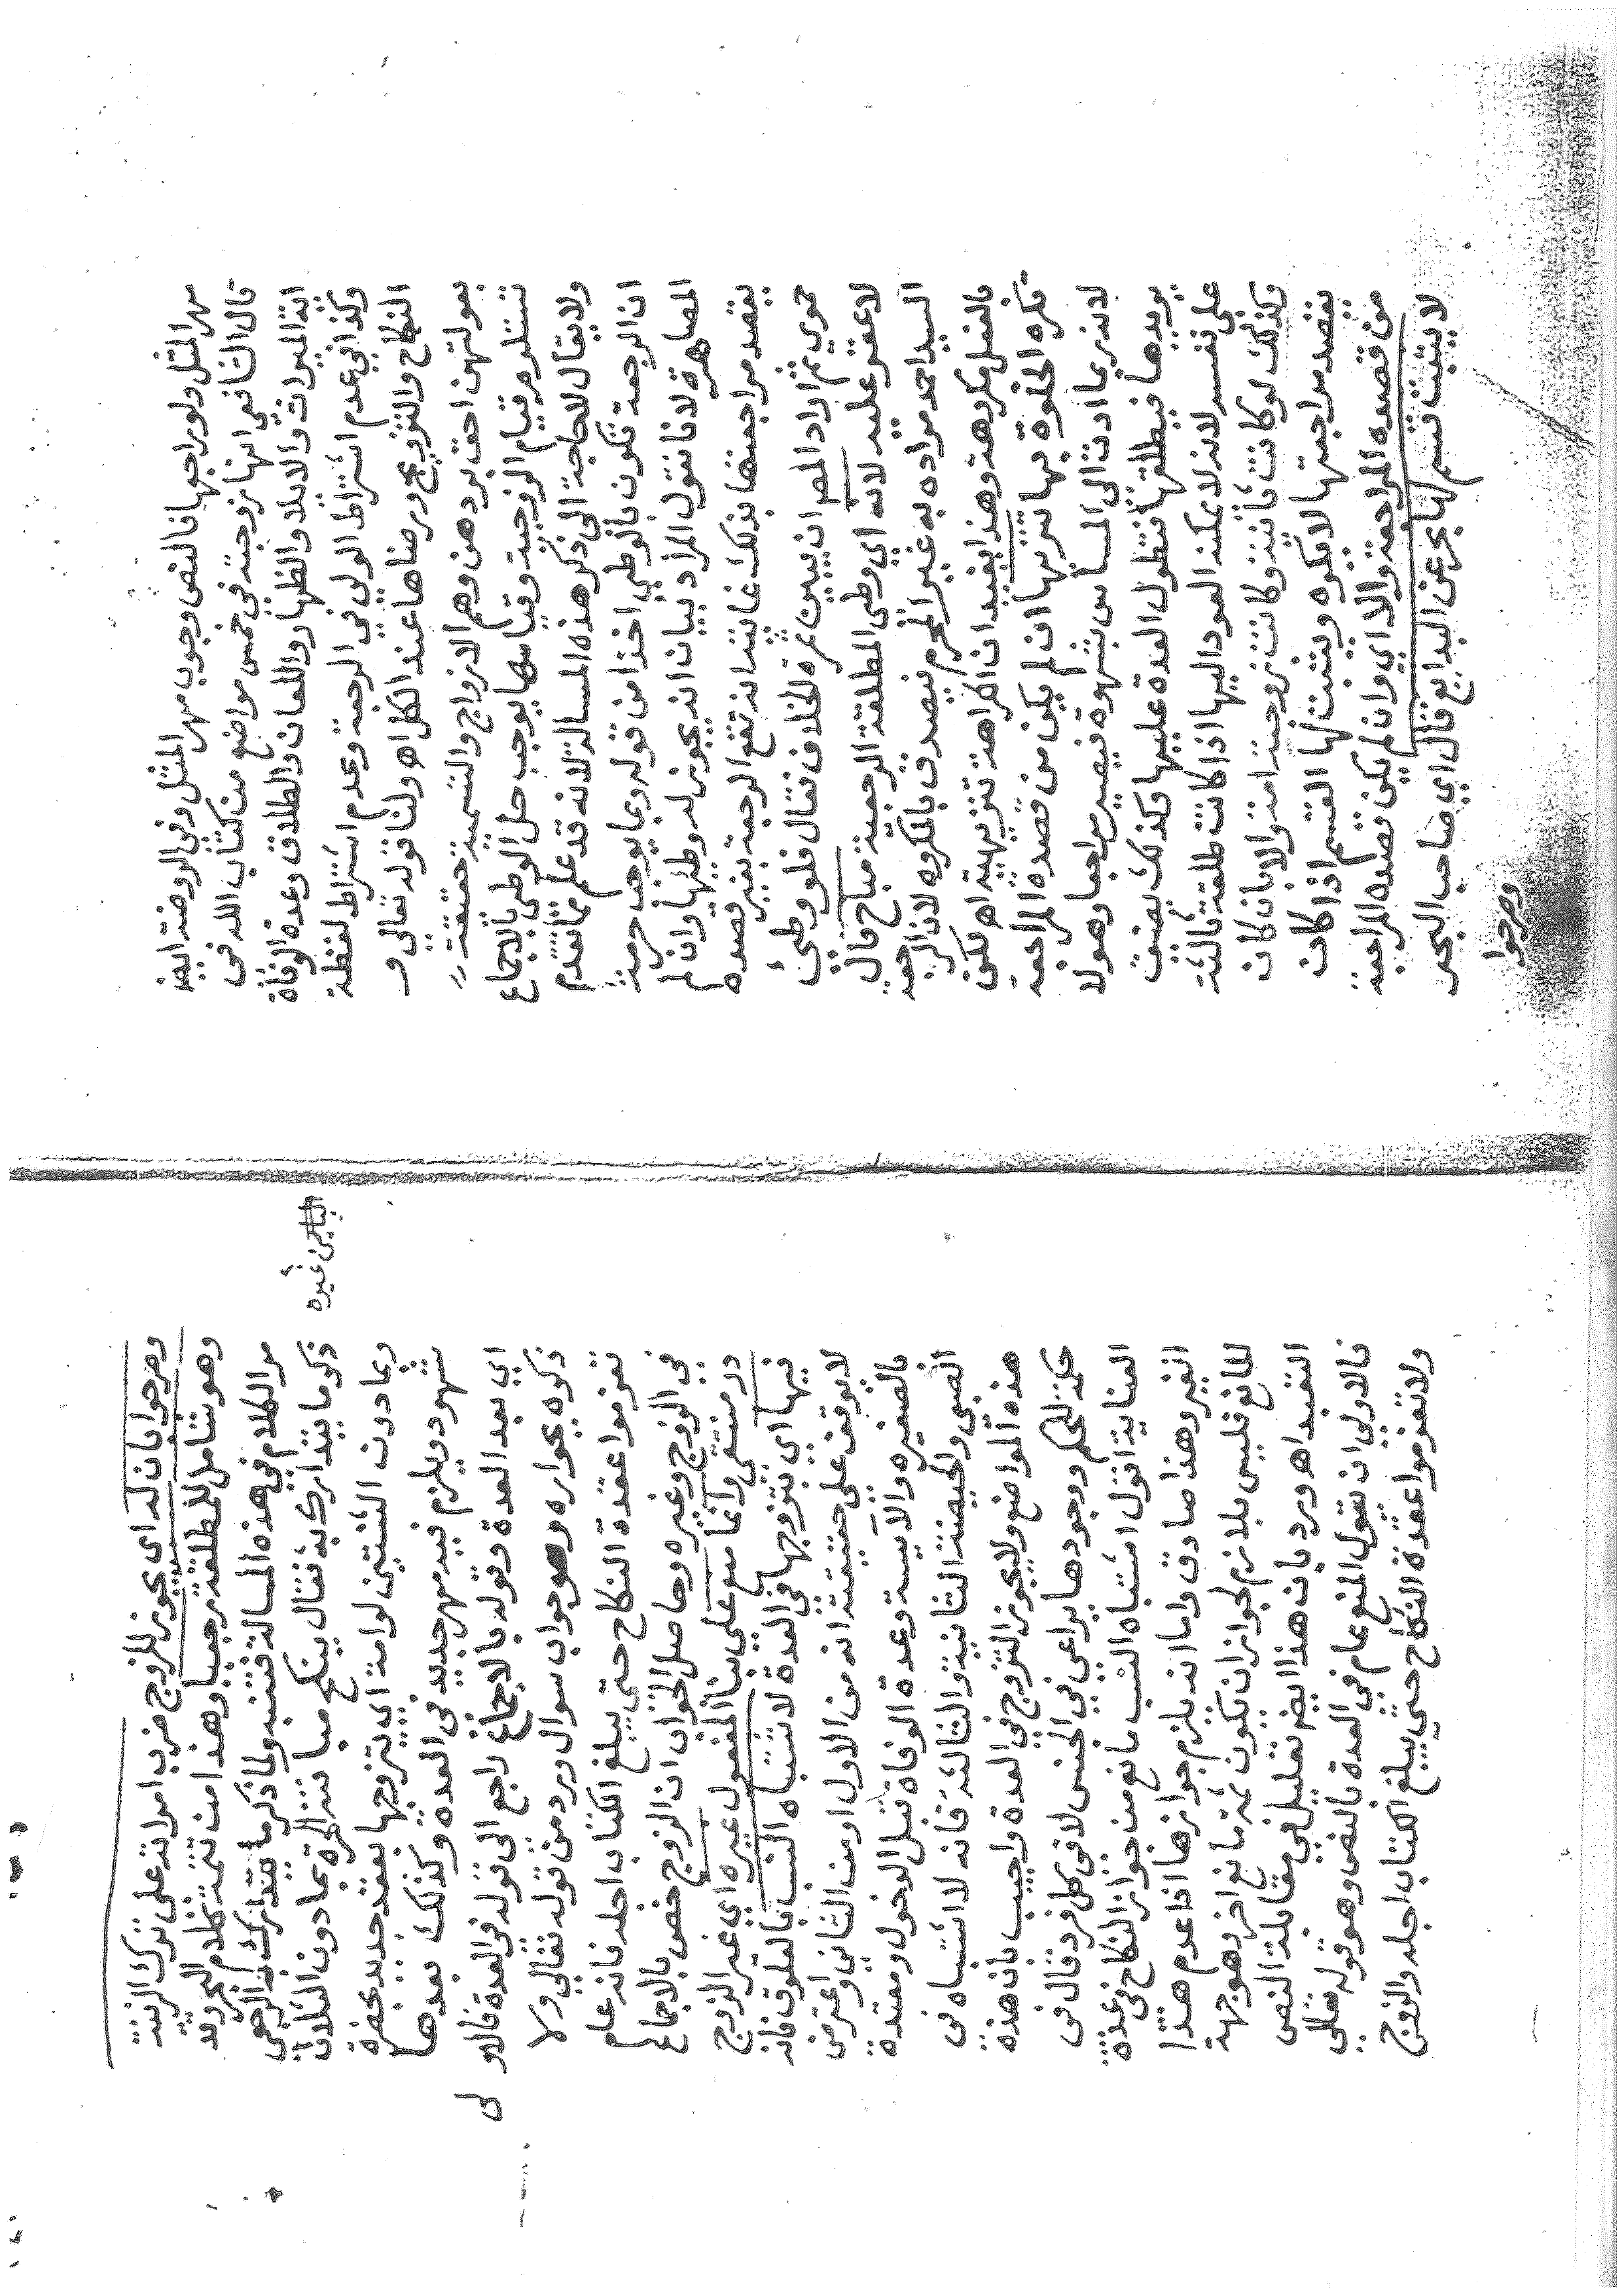 مهر المثل ولو راجعها فالنص وجوب مهر المثل وفي الروضة ايضا
قال الشافعي انها زوجته في خمس مواضع من كتاب الله في
اية الميراث والايلاء والظهار واللعان والطلاق وعدة الوفاة
وكذا في عدم اشتراط الولي في الرجعة وعدم اشتراط لفظة
النكاح والتزويج ورضاها عند الكل اهـ ولنا قوله تعالى و
بعولتهن احق بردهن وهم الازواج والتسمية حقيقة
تستلزم قيام الزوجية وقيامها يوجب حل الوطئ بالاجماع
ولا يقال لا حاجة الى ذكر هذه المسالة لانه قد علم مما تقدم
ان الرجعة تكون بالوطي اخذا من قوله وبما يوجب حرمة
المصاهرة لانا نقول المراد بيان انه يجوز له وطئها وان لم
يقصد مراجعتها بذلك غايته انه تقع الرجعة بغير قصده
حموي ثم اراد المصر ان يبين ثمرة الخلاف فقال فلو وطئ
لا عقر عليه لانه اي وطى المطلقة الرجعية مباح قال
السيد احمد مراده به غير المحرم فيصدق بالمكروه لان الرجعة
بالفعل مكروهة وهذا يفيد ان الكراهة تنزيهية اهـ لكن
تكره الخلوة بها تنزيها ان لم يكن من قصده المراجعة
لانه ربما ادت الى المساس بشهوة فيصير مراجعا وهو لا
يريدها فيطلقها فتطول العدة عليها وكذلك يضيق
على نفسه لانه لا يمكنه العود اليها اذا كانت طلقة ثالثة
وكذلك لو كانت ثانية وكانت زوجته امة والا بان كان
يقصد مراجعتها لا يكره ويثبت لها القسم اذا كان
من قصده المراجعة والا اي وان لم يكن قصده المراجعة
لا يثبت قسم لها بحر عن البدايع قال اي صاحب البحر
وصرحوا
وصرحوا بان له اي يجوز للزوج ضرب امراته على ترك الزينة
وهو شامل للمطلقة رجعيا وهذا من تتمة كلام البحر وقد
مر الكلام في هذه المسالة فتنبه ولما ذكر ما يتدارك به الرجعي
ذكر ما يتدارك به فقال ينكح مبانته الحرة بما دون الثلاث
البائن غيره
وبما دون الثنتين لو امة اي يتزوجها بعقد جديد بحضرة
شهود ويلزم فيه مهر جديد في العدة وكذلك بعدها
اي بعد العدة وقوله بالاجماع راجع الى قوله في العدة فالاولى
ذكره بجواره وهو جواب سوال ورد من قوله تعالى ولا
تعزموا عقدة النكاح حتى يبلغ الكتاب اجله فانه عام
في الزوج وغيره وحاصل الجواب ان الزوج خص بالاجماع
در منتقى وانما منع على بنا المفعول غيره اي غير الزوج
فيها اي يتزوجها في العدة لاشتباه النسب بالعلوق فانه
لا يوقف على حقيقته انه من الاول او من الثاني واعترض
بالصغيرة والآيسة وعدة الوفاة قبل الدخول ومعتدة
الصبي والحيضة الثانية والثالثة فانه لا اشتباه في
هذه المواضع ولا يجوز التزوج في العدة واجيب بان هذه
حكمة للحكم ووجودها يراعي في الجنس لا في كل فرد قال في
العناية اقول اشتباه النسب مانع من جواز النكاح في عدة
الغير وهذا صادق واما انه يلزم جوازها اذا عدم هذا
المانع فليس بلازم لجواز ان يكون ثمة مانع اخر وهو جهة
التعبد اهـ ورد بان هذا ايضا تعليل في مقابلة النص
فالاولى ان نقول المنع عام في العدة بالنص وهو قوله تعالى
ولا تعزموا عقدة النكاح حتى يبلغ الكتاب اجله والزوج